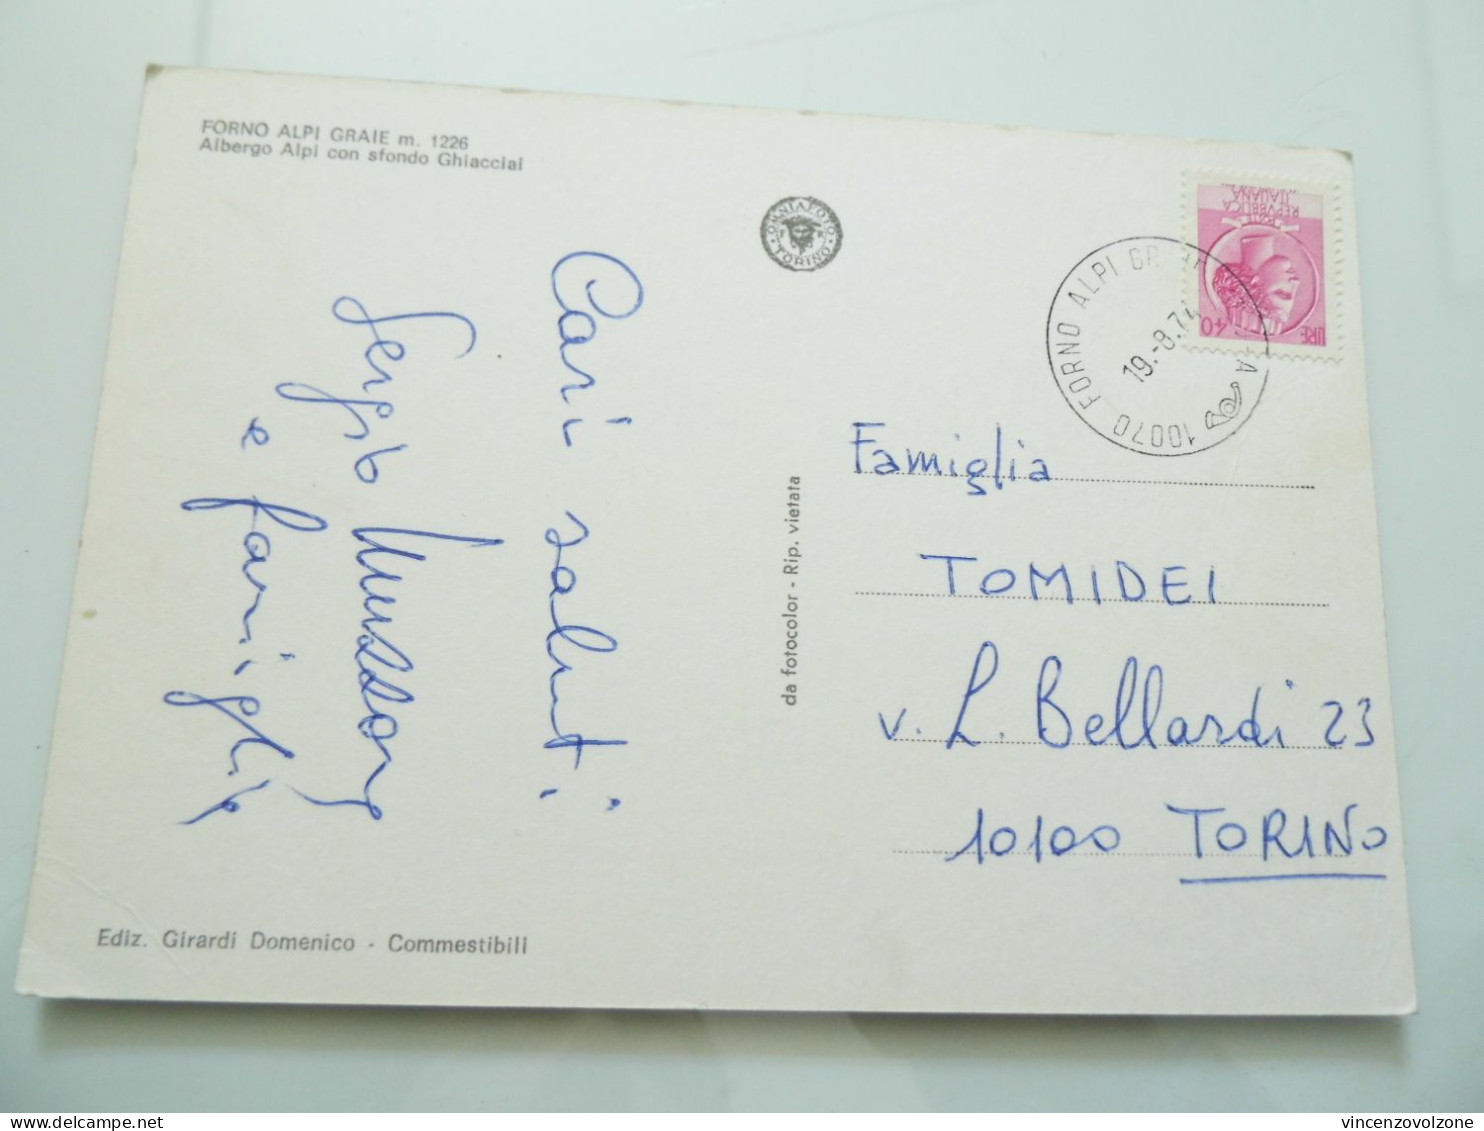 FORNO ALPI GRAIE m. 1226
Albergo Alpi con sfondo Ghiacciai
OMNIAFOTO
TORINO
Cari saluti
Sergio
e famiglia
da fotocolor - Rip. vietata
REPVBBLICA
ITALIANA
LIRE 40
10070 FORNO ALPI
19.-8.74
Famiglia
TOMIDEI
v. L. Bellardi 23
10100 TORINO
Ediz. Girardi Domenico - Commestibili
vincenzovolzone